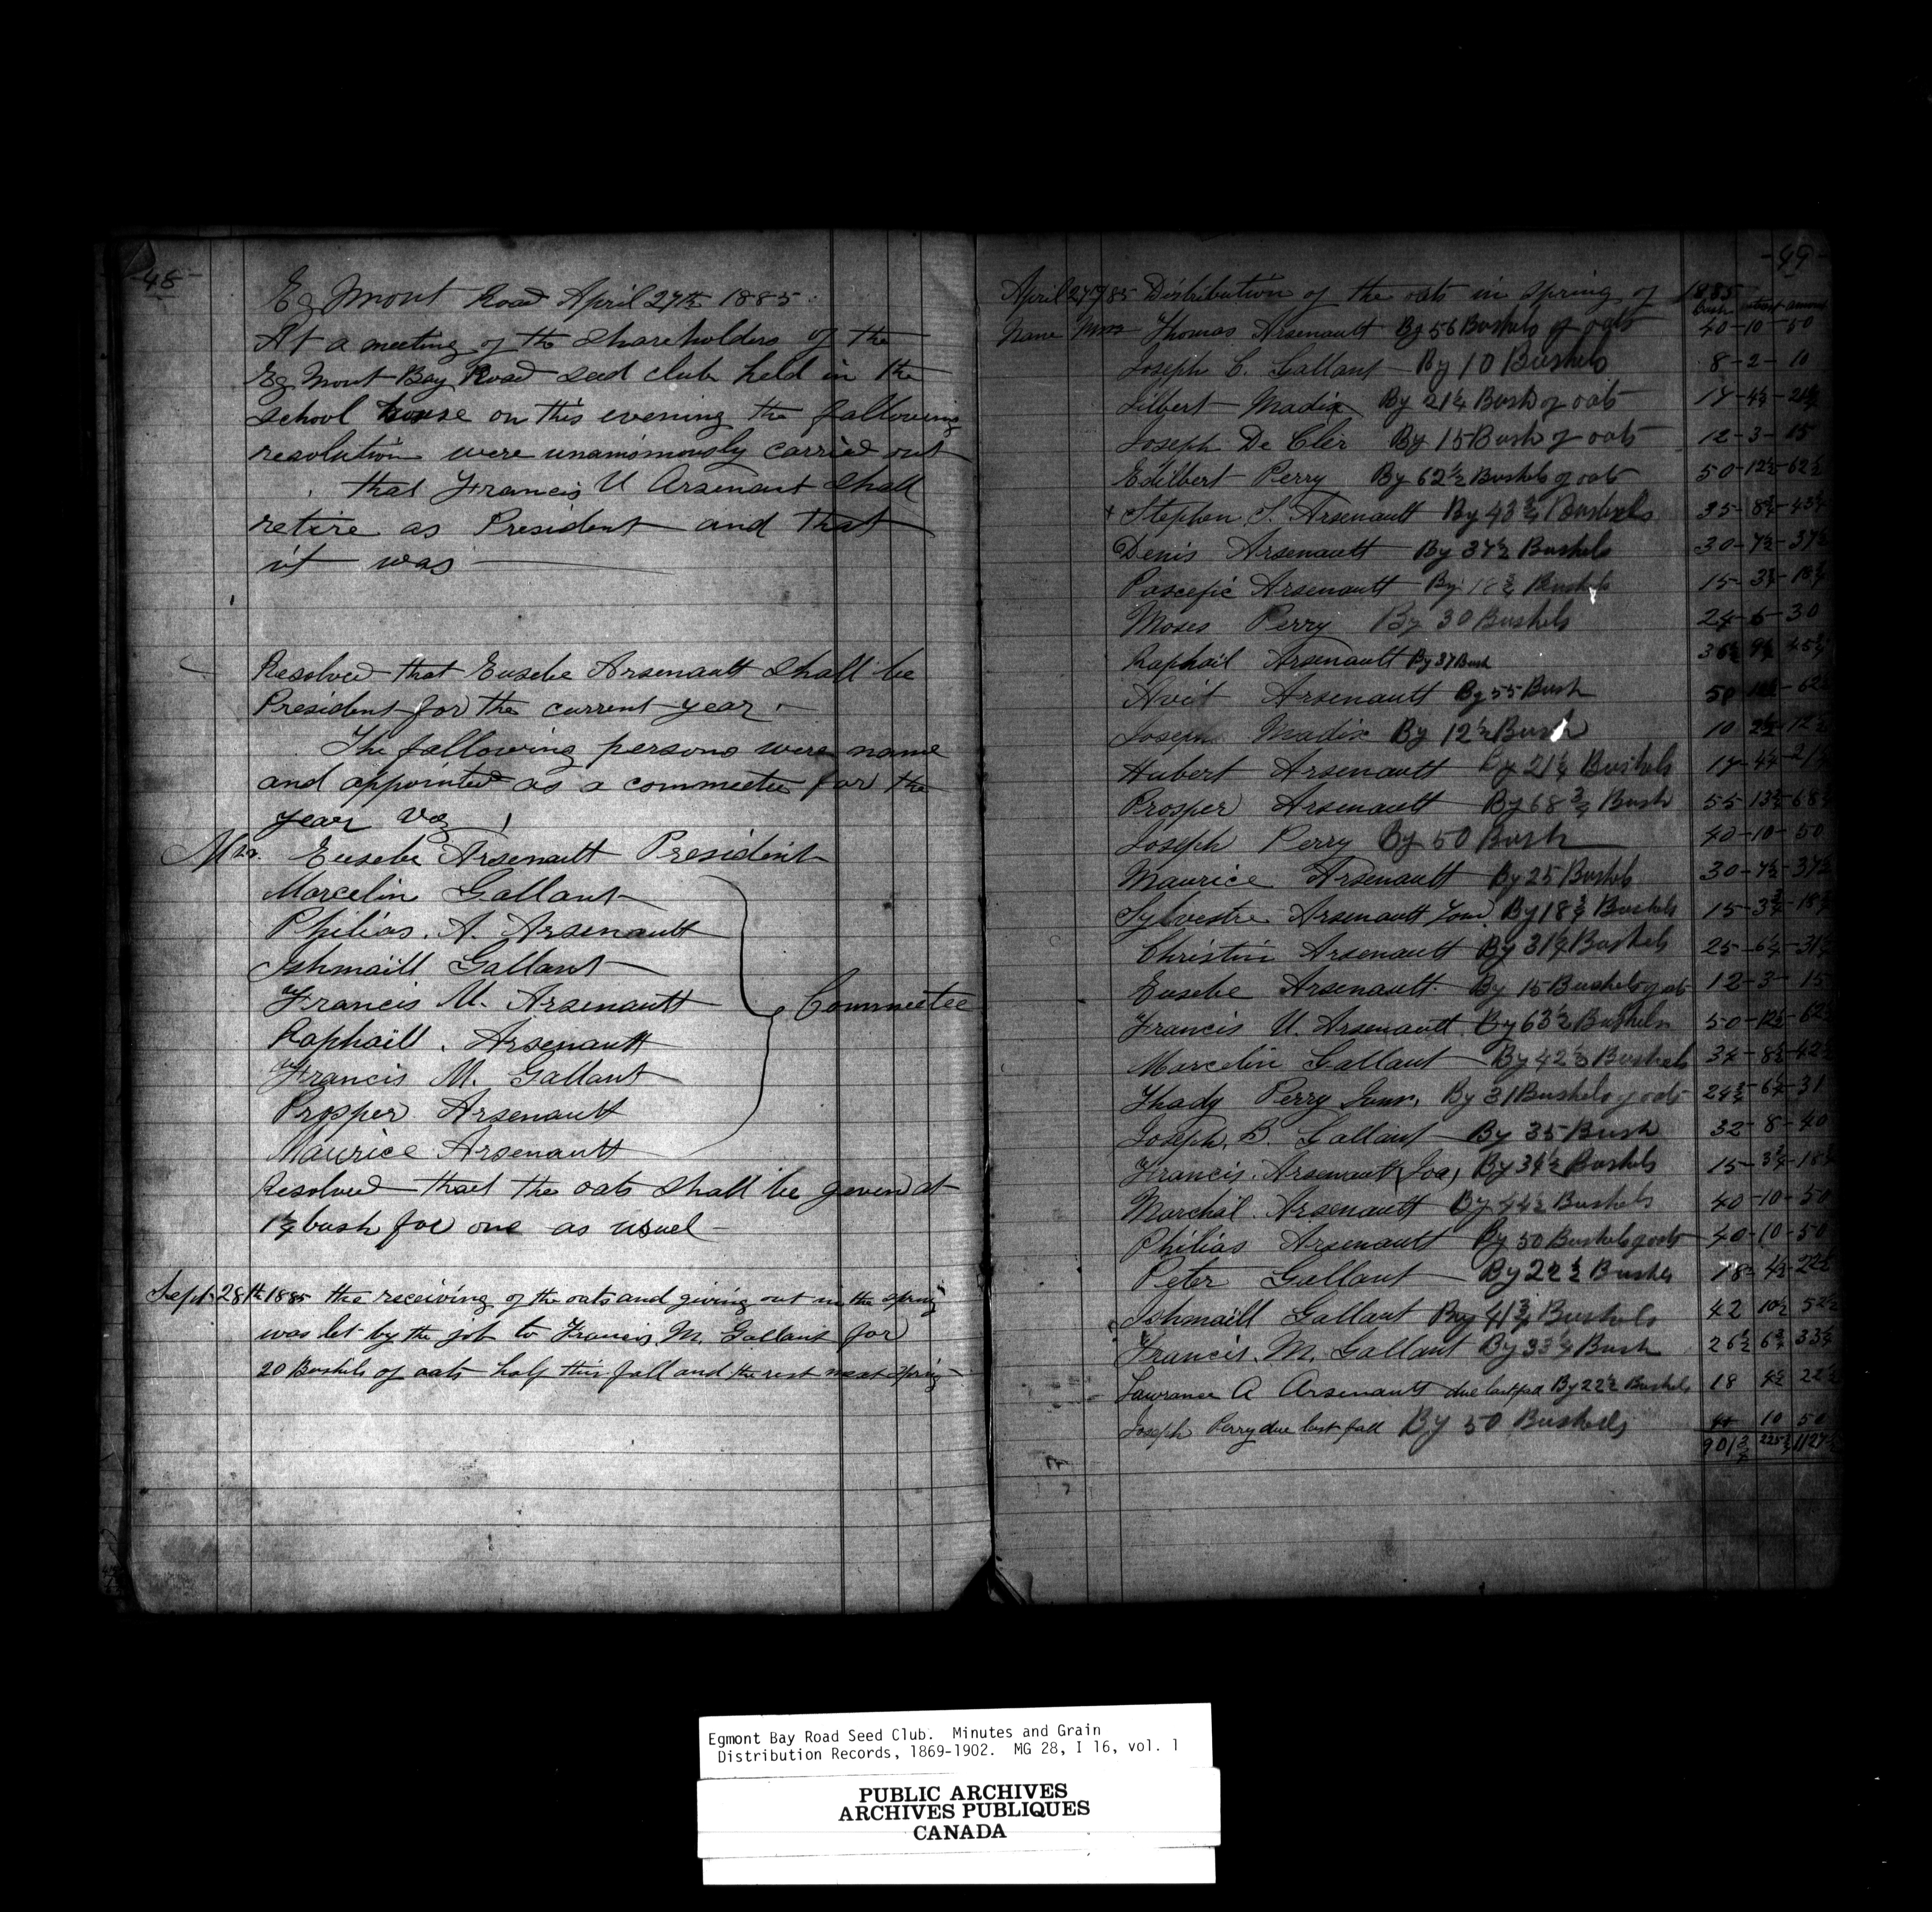 -48-
Egmont Road April 27th 1885.
At a meeting of the Shareholders of the
Egmont Bay Road seed club held in the
school house on this evening the fallowing
resolution were unanimously carried out
that Francis U Arsenaut shall
retire as President and that
it was
Resolved that Eusebe Arsenault shall be
President for the current year.
The fallowing persons were name
and appointed as a commeetee for the
year Viz
Mrs. Eusebe Arsenault President
Marcelin Gallant
Philias. A. Arsenault
Ishmaill Gallant
Francis U. Arsenault
Commeetee
Raphaill. Arsenault
Francis M. Gallant
Prosper Arsenault
Maurice Arsenault
Resolved that the oats shall be given at
1¼ bush for one as usuel
Sept 28th 1885 the receiving of the oats and giving out in the spring
was let by the job to Francis. M. Gallant for
20 Bushels of oats half this fall and the rest next spring
-49-
April 27th/85 Distribution of the oats in spring of 1885
bush interest amount
Name Mrs Thomas Arsenault By 56 Bushels of oats 40-10-50
Joseph C. Gallant By 10 Bushels 8-2-10
Gilbert Madix By 21¼ Bush of oats 17-4¼-21¼
Joseph De Cler By 15 Bush of oats 12-3-15
Edilbert Perry By 62½ Bushels of oats 50-12½-62½
+ Stephen S. Arsenault By 43¾ Bushels 35-8¾-43¾
Denis Arsenault By 37½ Bushels 30-7½-37½
Pascefic Arsenault By 18¾ Bushels 15-3¾-18¾
Moses Perry By 30 Bushels 24-6-30
Raphail Arsenault By 37 Bush 36½ 9¼ 45¾
Avit Arsenault By 55 Bush 50 62½
Joseph Madix By 12½ Bush 10 2½-12½
Hubert Arsenault By 21¼ Bushels 17-4¼-21¼
Prosper Arsenault By 68¾ Bush 55-13¾-68¾
Joseph Perry By 50 Bush 40-10-50
Maurice Arsenault By 25 Bushels 30-7½-37½
Sylvestre Arsenault By 18¾ Bushels 15-3¾-18¾
Christin Arsenault By 31¼ Bushels 25-6¼-31¼
Eusebe Arsenault. By 15 Bushels of oats 12-3-15
Francis U. Arsenault By 63½ Bushels 50-12½-62½
Marcelin Gallant By 42½ Bushels 34-8½-42½
Thady Perry Senr. By 31 Bushels of oats 24¾-6¼-31
Joseph. B. Gallant By 35 Bush 32-8-40
Francis. Arsenault (Joe) By 34½ Bushels 15-3¾-18¾
Marchal. Arsenault By 44½ Bushels 40-10-50
Philias Arsenault By 50 Bushels of oats 40-10-50
Peter Gallant By 22½ Bushes 18-4½-22½
Ishmaill Gallant By 41¾ Bushels 42 10½ 52½
Francis. M. Gallant By 33¼ Bush 26½ 6¾ 33¼
Lawrance A Arsenault due last fall By 22½ Bushels 18 4½ 22½
Joseph Perry due last fall By 50 Bushels 40 10 50
901¾ 225¾ 1127½
Egmont Bay Road Seed Club. Minutes and Grain
Distribution Records, 1869-1902. MG 28, I 16, vol. 1
PUBLIC ARCHIVES
ARCHIVES PUBLIQUES
CANADA